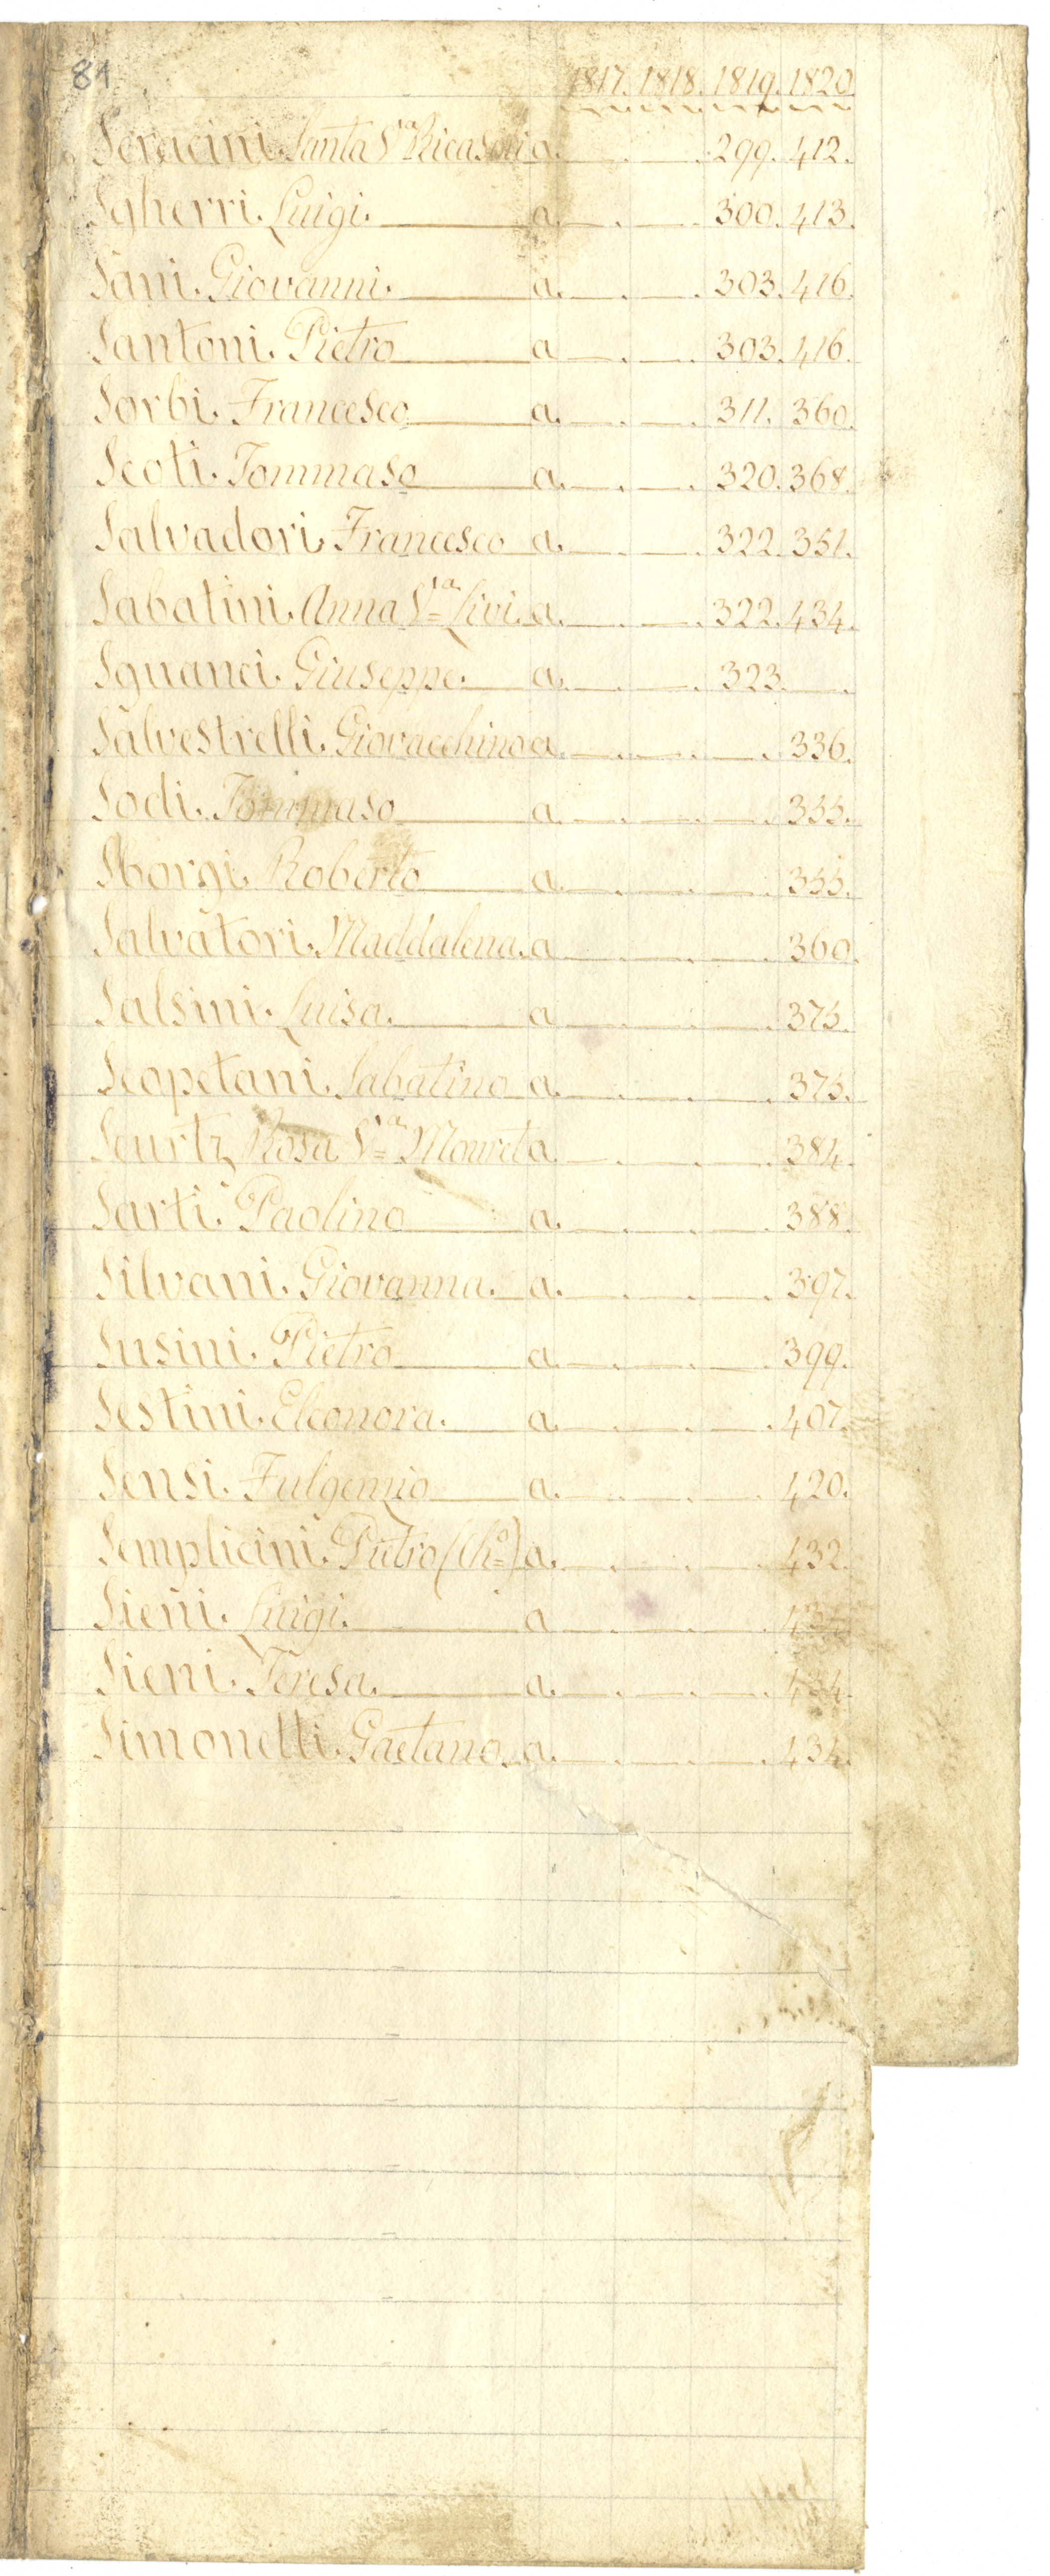 81
1817. 1818. 1819. 1820.
Seracini. Santa Vᵃ Ricasoli a. 299. 412.
Sgherri. Luigi. a. 300. 413.
Sani. Giovanni. a. 303. 416.
Santoni. Pietro a 303. 416.
Sorbi. Francesco a. 311. 360.
Scoti. Tommaso a. 320. 368.
Salvadori Francesco a. 322. 351.
Sabatini. Anna Vᵃ Livi. a. 322. 434.
Sguanci. Giuseppe. a. 323.
Salvestrelli. Giovacchino a. 336.
Sodi. Tommaso a. 355.
Sborgi. Roberto a. 355.
Salvatori. Maddalena. a. 360.
Salsini. Luisa. a 375.
Scopetani. Sabatino a. 375.
Scurtz Rosa Vᵃ Mouret a. 384.
Sarti. Paolino a. 388.
Silvani. Giovanna. a. 397.
Susini. Pietro a. 399.
Sestini. Eleonora. a. 407.
Sensi. Fulgenzio a. 420.
Semplicini. Pietro (Chº) a. 432.
Sieni. Luigi. a
Sieni. Teresa. a. 434.
Simonelli. Gaetano. a. 434.